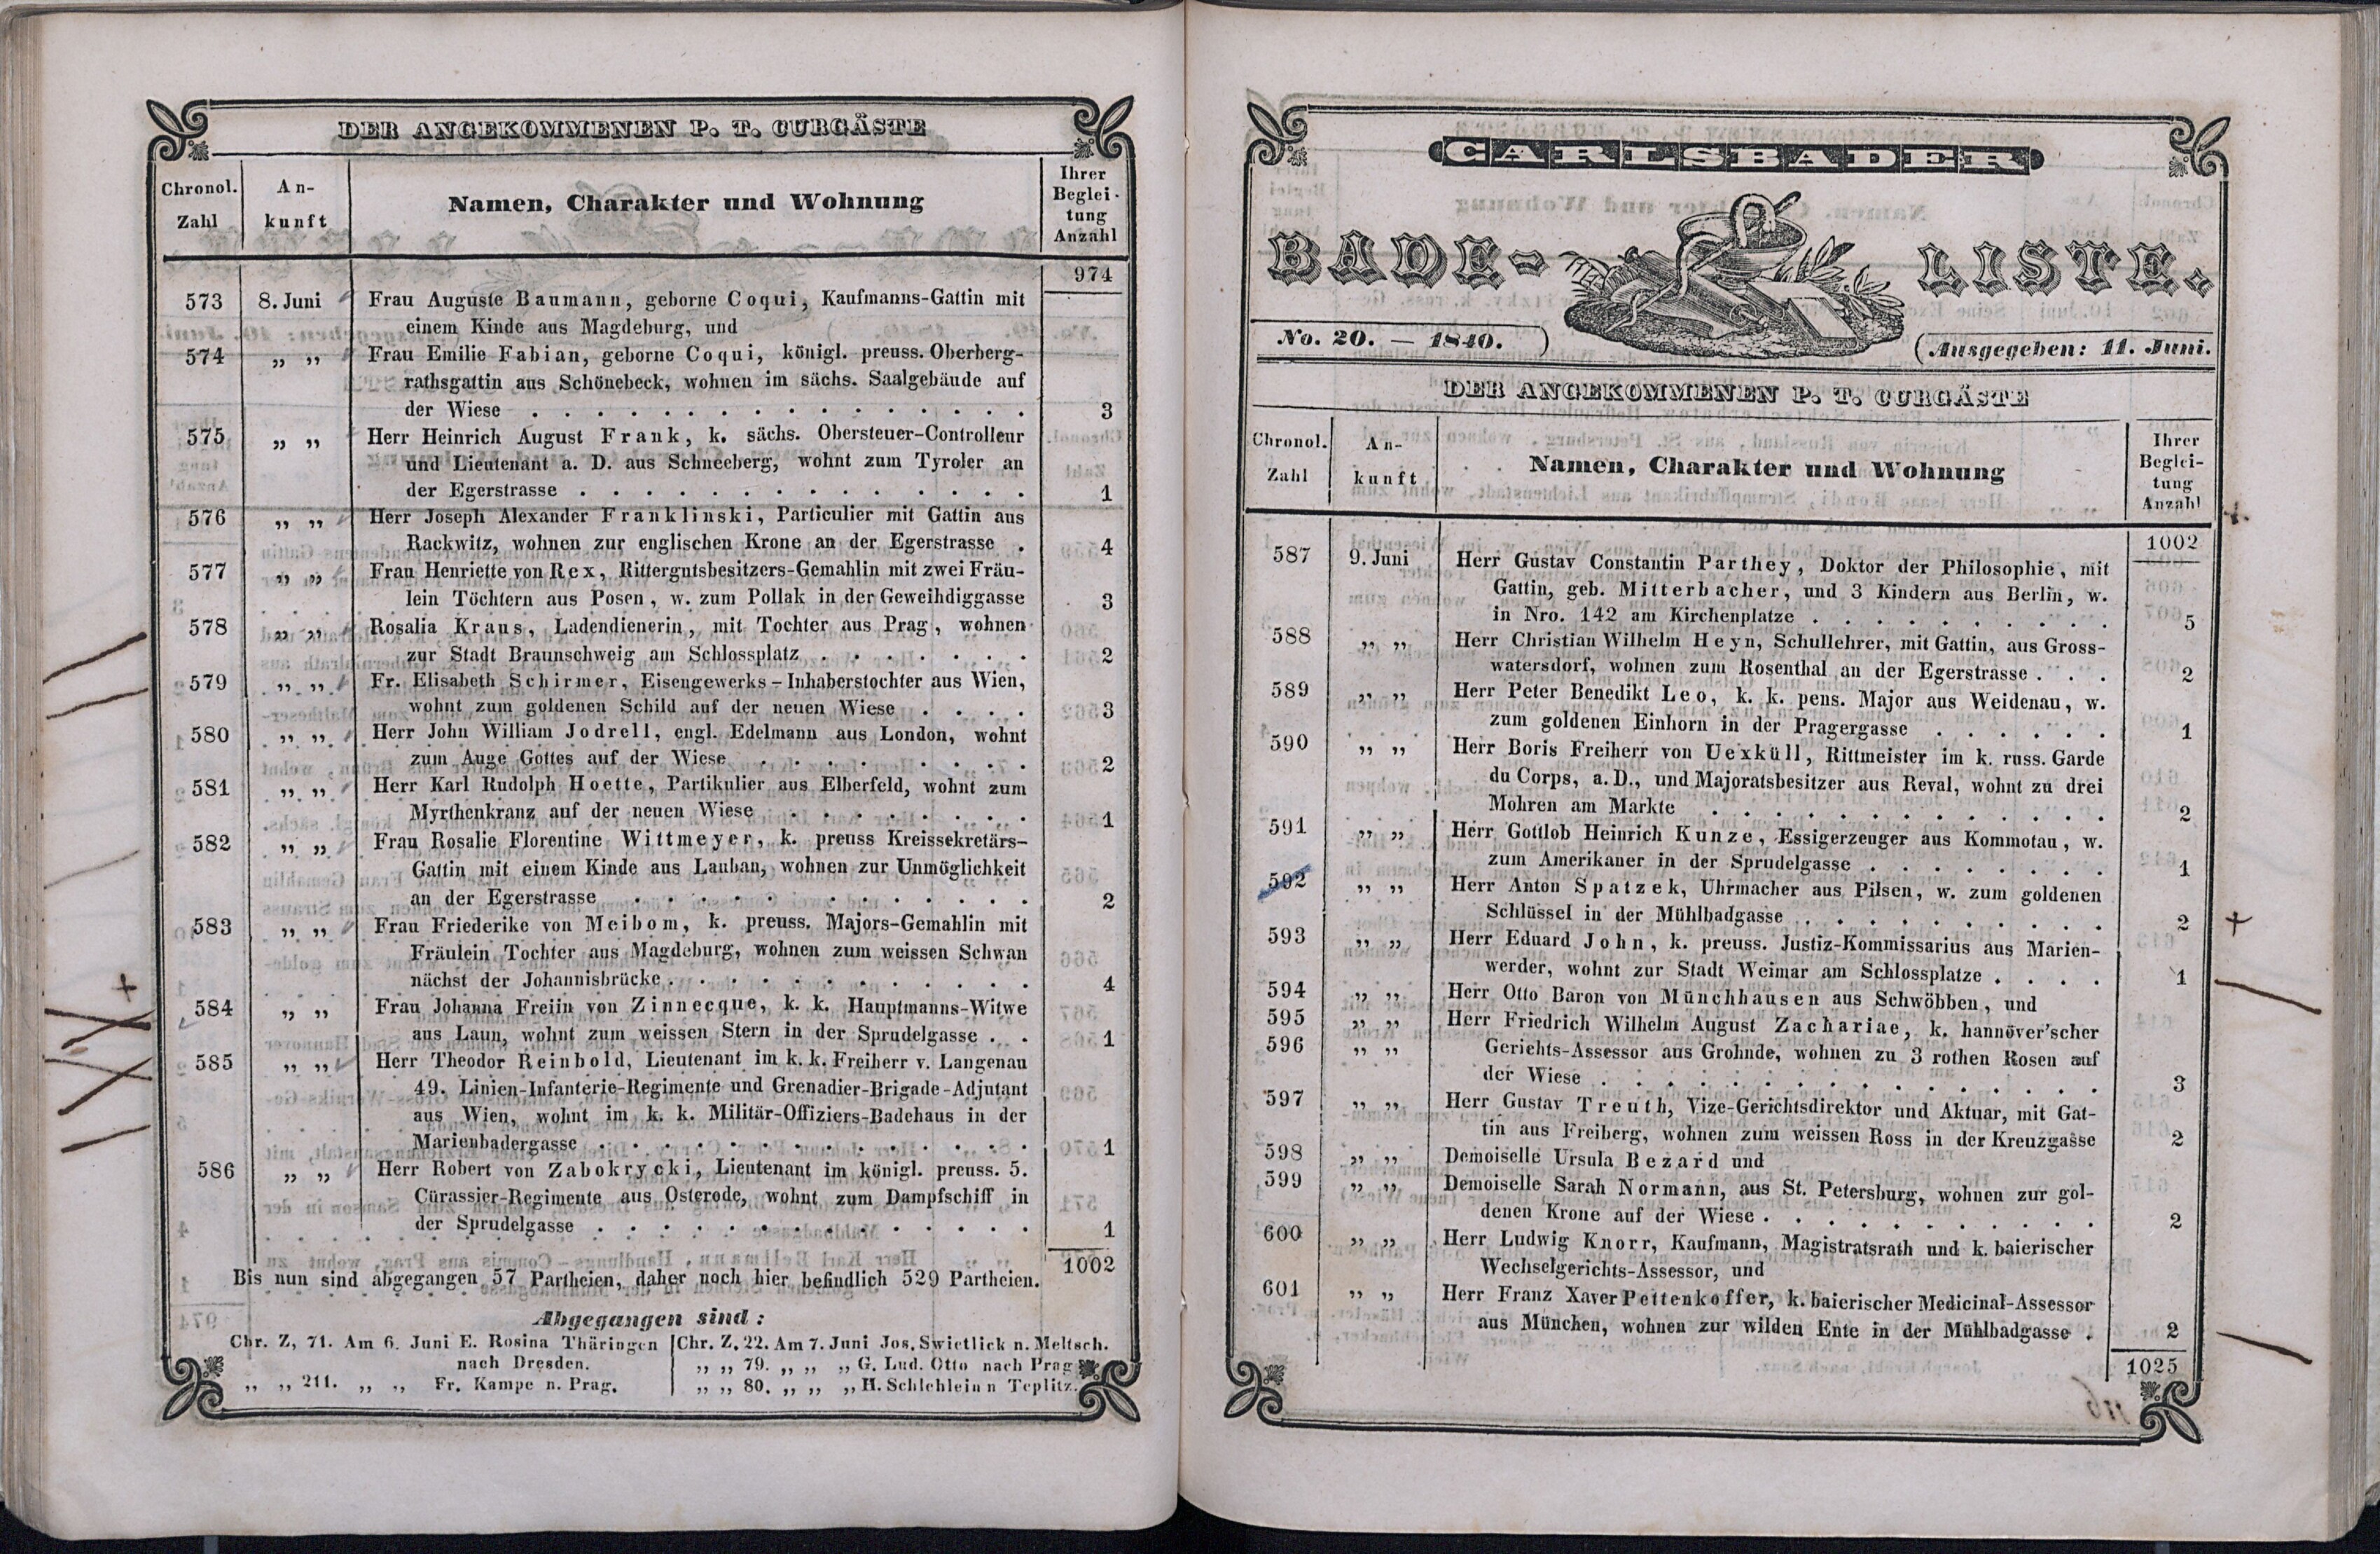 DER ANGEKOMMENEN P. T. CURGÄSTE
Chronol. Zahl
An-kunft
Namen, Charakter und Wohnung
Ihrer Beglei-tung Anzahl
974
573 8. Juni Frau Auguste Baumann, geborne Coqui, Kaufmanns-Gattin mit
einem Kinde aus Magdeburg, und
574 „ „ Frau Emilie Fabian, geborne Coqui, königl. preuss. Oberberg-
rathsgattin aus Schönebeck, wohnen im sächs. Saalgebäude auf
der Wiese . . . 3
575 „ „ Herr Heinrich August Frank, k. sächs. Obersteuer-Controlleur
und Lieutenant a. D. aus Schneeberg, wohnt zum Tyroler an
der Egerstrasse . . . 1
576 „ „ Herr Joseph Alexander Franklinski, Particulier mit Gattin aus
Rackwitz, wohnen zur englischen Krone an der Egerstrasse . 4
577 „ „ Frau Henriette von Rex, Rittergutsbesitzers-Gemahlin mit zwei Fräu-
lein Töchtern aus Posen, w. zum Pollak in der Geweihdiggasse 3
578 „ „ Rosalia Kraus, Ladendienerin, mit Tochter aus Prag, wohnen
zur Stadt Braunschweig am Schlossplatz . . . 2
579 „ „ Fr. Elisabeth Schirmer, Eisengewerks-Inhaberstochter aus Wien,
wohnt zum goldenen Schild auf der neuen Wiese . . . 3
580 „ „ Herr John William Jodrell, engl. Edelmann aus London, wohnt
zum Auge Gottes auf der Wiese . . . 2
581 „ „ Herr Karl Rudolph Hoette, Partikulier aus Elberfeld, wohnt zum
Myrthenkranz auf der neuen Wiese . . . 1
582 „ „ Frau Rosalie Florentine Wittmeyer, k. preuss Kreissekretärs-
Gattin mit einem Kinde aus Lauban, wohnen zur Unmöglichkeit
an der Egerstrasse . . . 2
583 „ „ Frau Friederike von Meibom, k. preuss. Majors-Gemahlin mit
Fräulein Tochter aus Magdeburg, wohnen zum weissen Schwan
nächst der Johannisbrücke . . . 4
584 „ „ Frau Johanna Freiin von Zinnecque, k. k. Hauptmanns-Witwe
aus Laun, wohnt zum weissen Stern in der Sprudelgasse . . 1
585 „ „ Herr Theodor Reinbold, Lieutenant im k. k. Freiherr v. Langenau
49. Linien-Infanterie-Regimente und Grenadier-Brigade-Adjutant
aus Wien, wohnt im k. k. Militär-Offiziers-Badehaus in der
Marienbadergasse . . . 1
586 „ „ Herr Robert von Zabokrycki, Lieutenant im königl. preuss. 5.
Cürassier-Regimente aus Osterode, wohnt zum Dampfschiff in
der Sprudelgasse . . . 1
1002
Bis nun sind abgegangen 57 Partheien, daher noch hier befindlich 529 Partheien.
Abgegangen sind:
Chr. Z, 71. Am 6. Juni E. Rosina Thäringen
nach Dresden.
„ „ 211. „ „ Fr. Kampe n. Prag.
Chr. Z. 22. Am 7. Juni Jos. Swietlick n. Meltsch.
„ „ 79. „ „ „ G. Lud. Otto nach Prag
„ „ 80. „ „ „ H. Schlehlein n Teplitz.
CARLSBADER
BADE-LISTE.
No. 20. — 1840.
(Ausgegeben: 11. Juni.
DER ANGEKOMMENEN P. T. CURGÄSTE
Chronol. Zahl
An-kunft
Namen, Charakter und Wohnung
Ihrer Beglei-tung Anzahl
1002
587 9. Juni Herr Gustav Constantin Parthey, Doktor der Philosophie, mit
Gattin, geb. Mitterbacher, und 3 Kindern aus Berlin, w.
in Nro. 142 am Kirchenplatze . . . 5
588 „ „ Herr Christian Wilhelm Heyn, Schullehrer, mit Gattin, aus Gross-
watersdorf, wohnen zum Rosenthal an der Egerstrasse . . . 2
589 „ „ Herr Peter Benedikt Leo, k. k. pens. Major aus Weidenau, w.
zum goldenen Einhorn in der Pragergasse . . . 1
590 „ „ Herr Boris Freiherr von Uexküll, Rittmeister im k. russ. Garde
du Corps, a. D., und Majoratsbesitzer aus Reval, wohnt zu drei
Mohren am Markte . . . 2
591 „ „ Herr Gottlob Heinrich Kunze, Essigerzeuger aus Kommotau, w.
zum Amerikaner in der Sprudelgasse . . . 1
592 „ „ Herr Anton Spatzek, Uhrmacher aus Pilsen, w. zum goldenen
Schlüssel in der Mühlbadgasse . . . 2
593 „ „ Herr Eduard John, k. preuss. Justiz-Kommissarius aus Marien-
werder, wohnt zur Stadt Weimar am Schlossplatze . . . 1
594 „ „ Herr Otto Baron von Münchhausen aus Schwöbben, und
595 „ „ Herr Friedrich Wilhelm August Zachariae, k. hannöver'scher
596 „ „ Gerichts-Assessor aus Grohnde, wohnen zu 3 rothen Rosen auf
der Wiese . . . 3
597 „ „ Herr Gustav Treuth, Vize-Gerichtsdirektor und Aktuar, mit Gat-
tin aus Freiberg, wohnen zum weissen Ross in der Kreuzgasse 2
598 „ „ Demoiselle Ursula Bezard und
599 „ „ Demoiselle Sarah Normann, aus St. Petersburg, wohnen zur gol-
denen Krone auf der Wiese . . . 2
600 „ „ Herr Ludwig Knorr, Kaufmann, Magistratsrath und k. baierischer
Wechselgerichts-Assessor, und
601 „ „ Herr Franz Xaver Pettenkoffer, k. baierischer Medicinal-Assessor
aus München, wohnen zur wilden Ente in der Mühlbadgasse . 2
1025